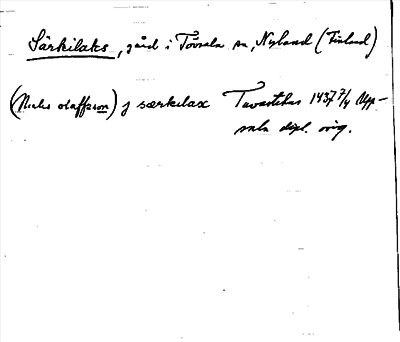 Särkilaks, gård i Tövsala sn, Nyland (Finland)
(Niclis olaffzson) j særkilax Tavastehus 1437 7/4 Upp-
sala dipl. orig.